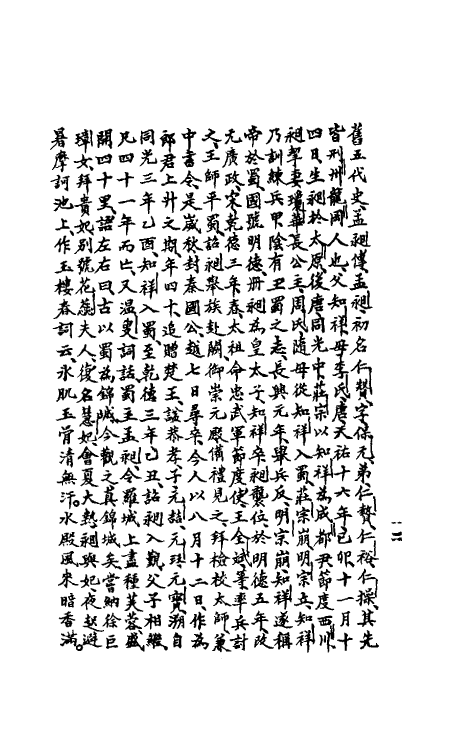 舊五代史孟昶僅孟昶初名仁贊字保元弟仁贊仁裕仁操其先
皆刑州龍岡人也父知祥母李氏唐天祐十六年己卯十一月十
四日生昶於太原後唐同光中莊宗以知祥為成都尹節度西川
昶挈妻瓊華長公主周氏隨母從知祥入蜀莊宗崩明宗立知祥
乃訓練兵甲陰有王蜀之志長興元年舉兵反明宗崩知祥遂稱
帝於蜀國號明德冊昶為皇太子知祥卒昶襲位於明德五年改
元廣政宋乾德三年春太祖命忠武軍節度使王全斌等率兵討
之王師平蜀詔昶舉族赴闕御崇元殿備禮見之拜檢校太師兼
中書令是歲秋封秦國公越七日尋卒今人以八月十二日作為
郎君上升之期年四十追贈楚王諡恭孝子元喆元珏元寶溯自
同光三年乙酉知祥入蜀至乾德三年乙丑詔昶入觀父子相繼
凡四十一年而亡又溫叟詞話蜀王孟昶令羅城上盡種芙蓉盛
開四十里語左右曰古以蜀為錦城今觀之真錦城矣嘗納徐匡
璋女拜貴妃別號花蕊夫人復名慧妃會夏大熱昶與妃夜起避
暑摩訶池上作玉樓春詞云冰肌玉骨清無汗水殿風來暗香滿
二